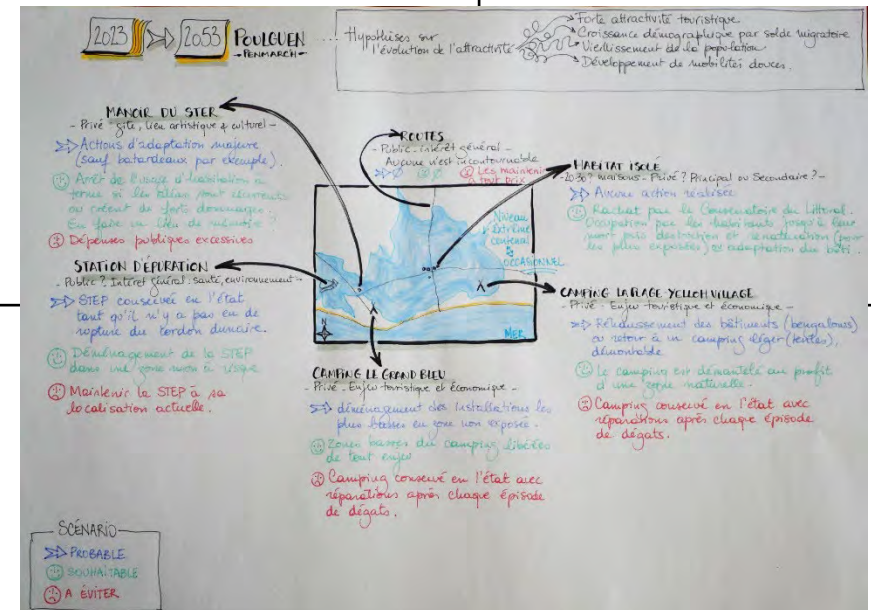 2023 2053 POULGUEN
- PENMARCH -
... Hypothèses sur
l'évolution de l'attractivité
Forte attractivité touristique
Croissance démographique par solde migratoire
Vieillissement de la population
Développement de mobilités douces.
MANOIR DU STER
- Privé - gîte, lieu artistique & culturel -
Actions d'adaptation majeure
(sauf batardeaux par exemple).
Arrêt de l'usage d'habitation à
terme si les aléas sont récurrents
ou créent de forts dommages.
En faire un lieu de mémoire ?
Dépenses publiques excessives
STATION D'ÉPURATION
- Public ? Intérêt général : santé, environnement -
STEP conservée en l'état
tant qu'il n'y a pas eu de
rupture du cordon dunaire.
Déménagement de la STEP
dans une zone non à risque
Maintenir la STEP à sa
localisation actuelle.
ROUTES
- Public - intérêt général -
Aucune n'est incontournable
Ø Ø Les maintenir
à tout prix
Niveau
Extrême
centennal
OCCASIONNEL
N
MER
HABITAT ISOLÉ
maisons - Privé ? Principal ou Secondaire ? -
Aucune action réalisée
Rachat par le Conservatoire du Littoral.
Occupation par les habitants jusqu'à leur
mort puis destruction et renaturation (pour
les plus exposées) et adaptation du bâti.
CAMPING LA PLAGE YELLOH VILLAGE
- Privé - Enjeu touristique et économique -
Réhaussement des bâtiments (bungalows)
ou retour à un camping léger (tentes),
démontable
Le camping est démantelé au profit
d'une zone naturelle.
Camping conservé en l'état avec
réparations après chaque épisode
de dégâts.
CAMPING LE GRAND BLEU
- Privé - Enjeu touristique et économique -
déménagement des installations les
plus basses en zone non exposée.
Zones basses du camping libérées
de tout enjeu
Camping conservé en l'état avec
réparations après chaque épisode
de dégâts.
SCÉNARIO
PROBABLE
SOUHAITABLE
A ÉVITER